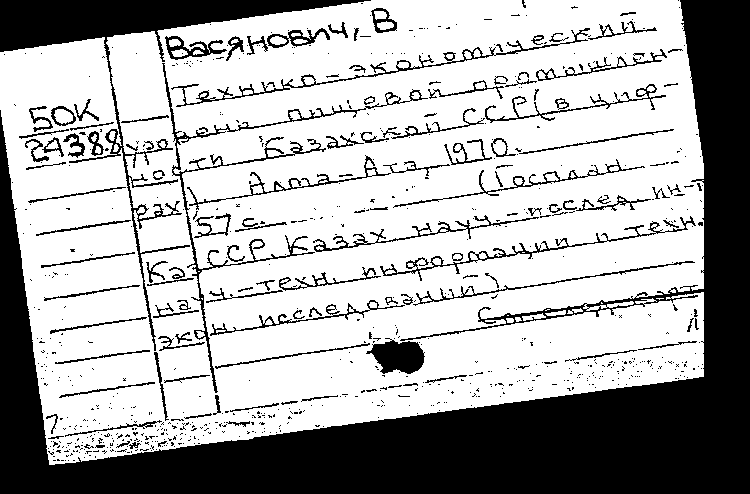 Васянович, В
Технико-экономический
50К
24388
уровень пищевой промышлен-
ности Казахской ССР (в циф-
рах). Алма-Ата, 1970.
57 с. (Госплан
Каз ССР. Казах науч.-исслед. ин-т
науч.-техн. информации и техн.
экон. исследований).
См. след. карт